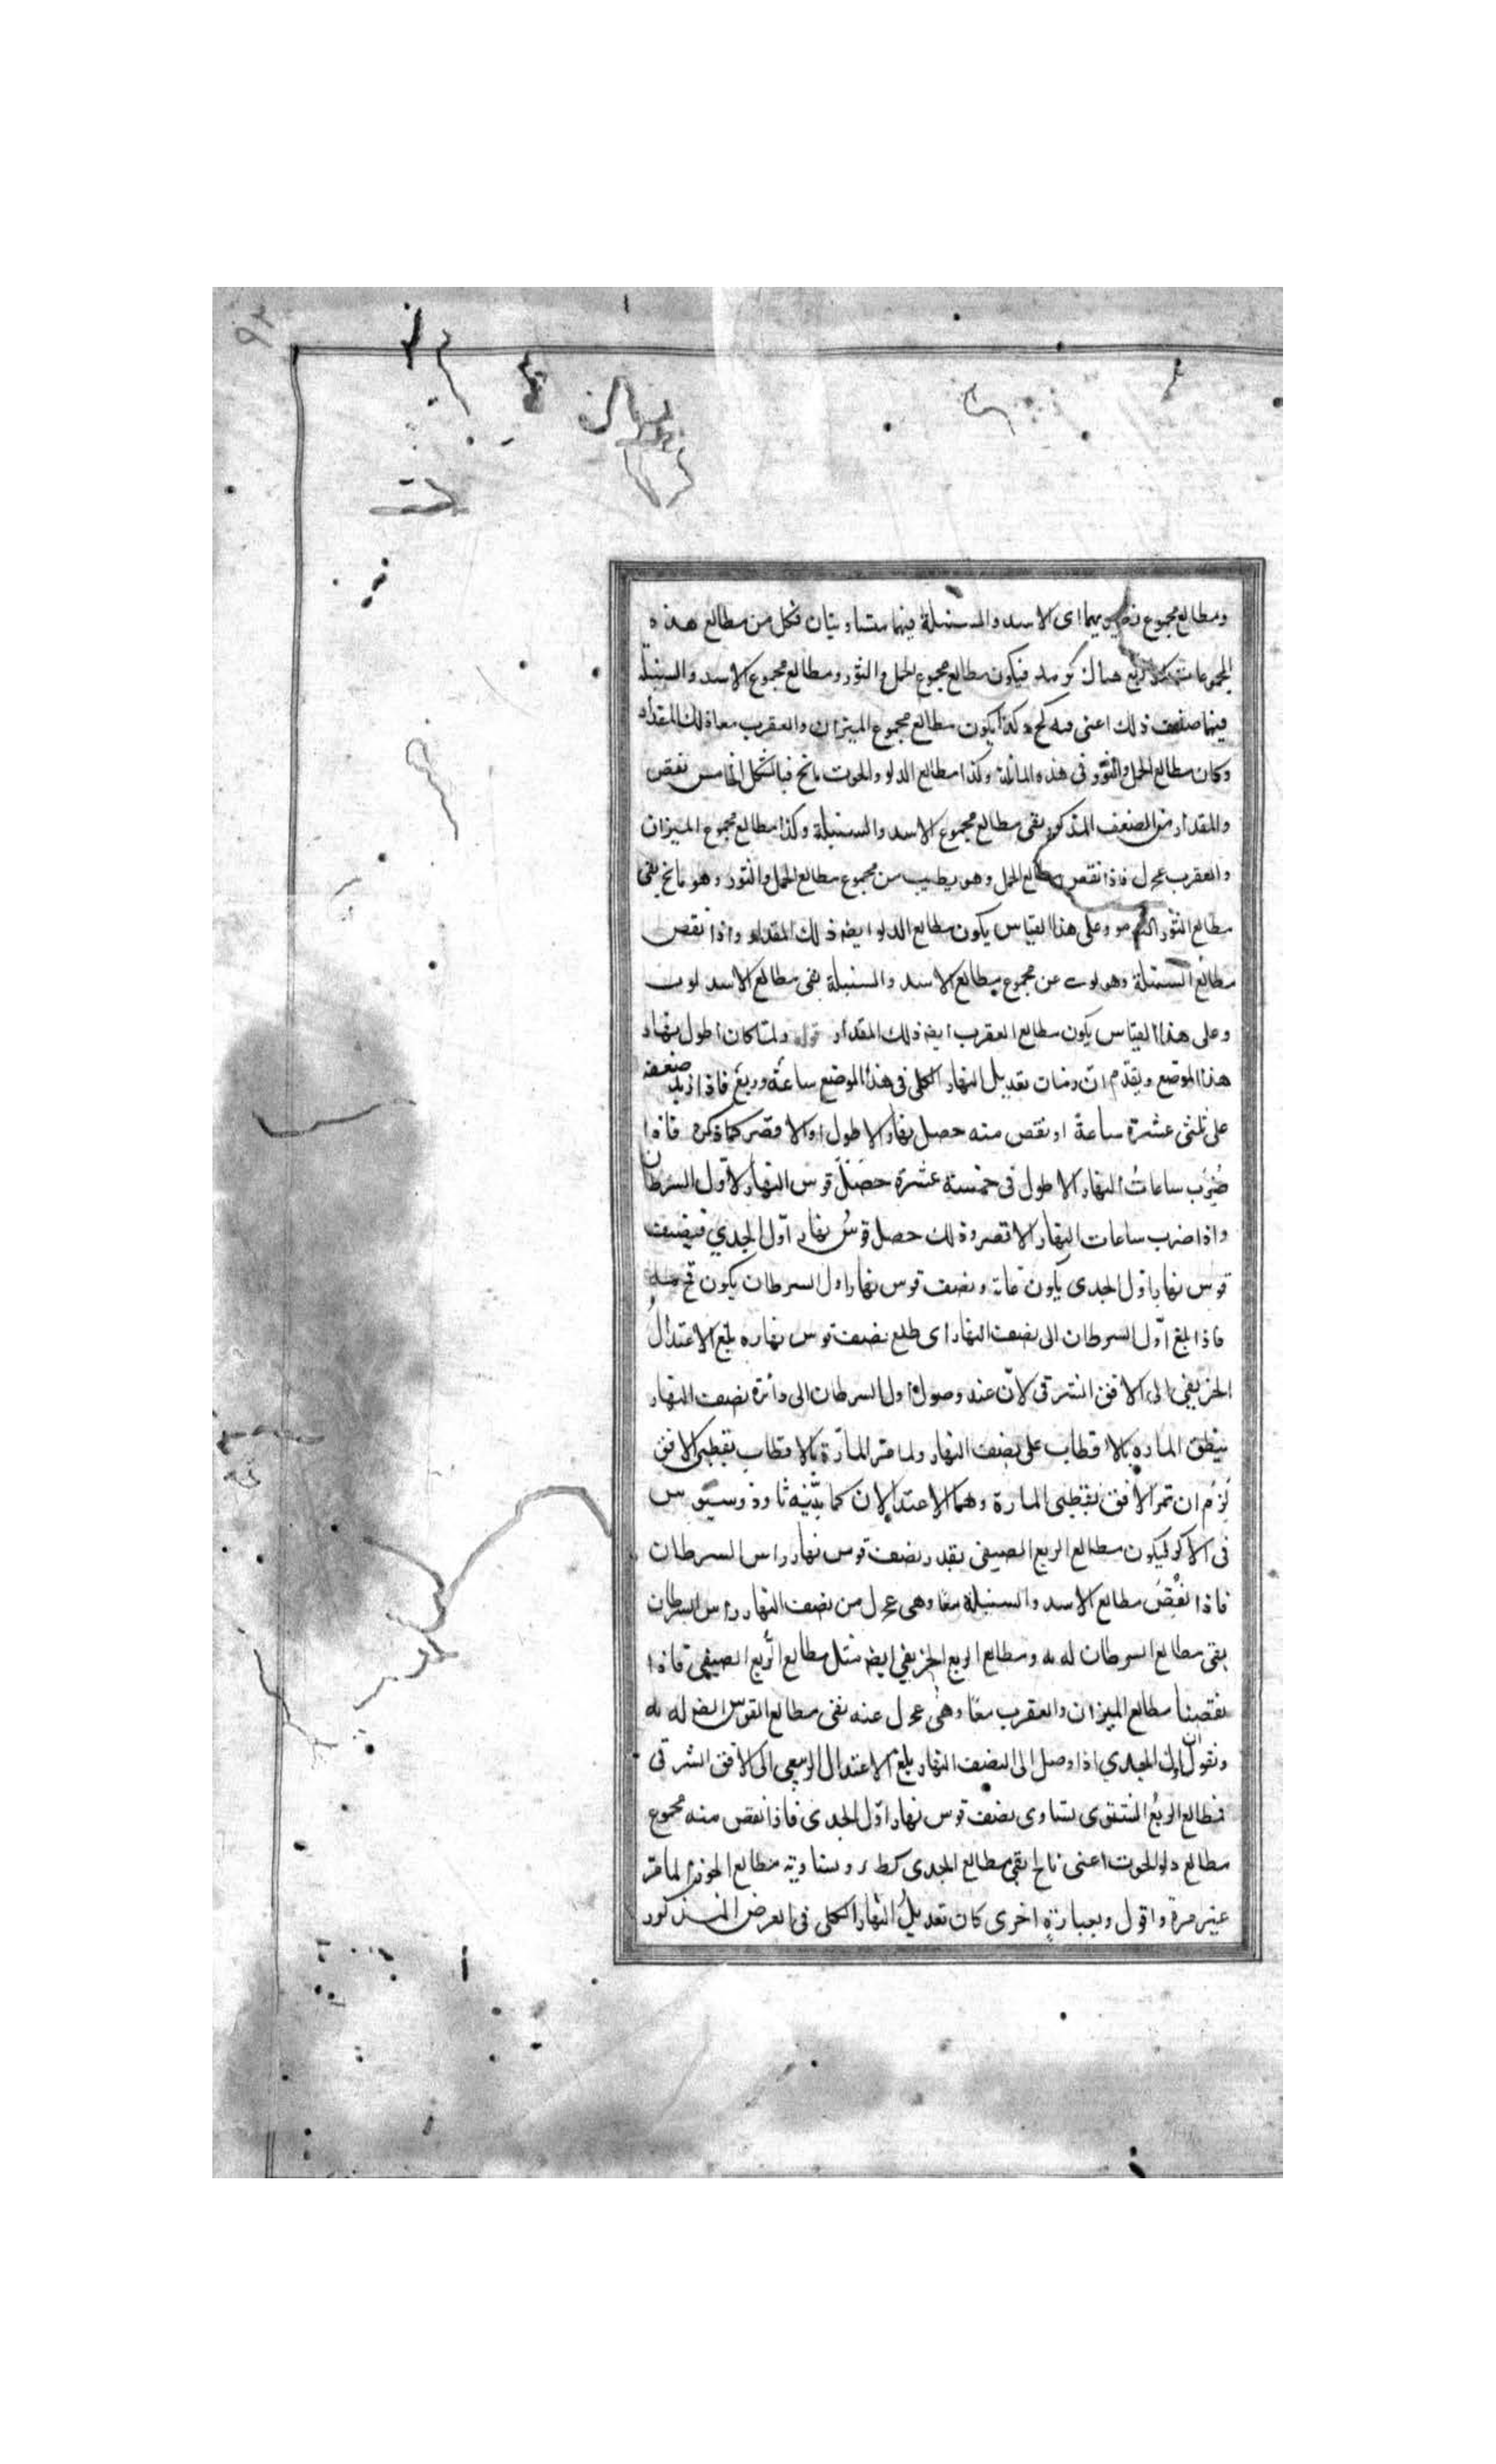 ومطالع مجموع نظيريهما اى الاسد والسنبلة فيها متساويتان فكل من مطالع هذه
المجموعات هناك فيكون مطالع مجموع الحمل والثور ومطالع مجموع الاسد والسنبلة
فيها ضعف ذلك اعنى قيه كح وكذا يكون مطالع مجموع الميزان والعقرب معا ذلك المقدار
وكان مطالع الحمل والثور فى هذه المائلة وكذا مطالع الدلو والحوت مانح فبالشكل الخامس نقص
والمقدار من الضعف المذكور بقى مطالع مجموع الاسد والسنبلة وكذا مطالع مجموع الميزان
والعقرب عحل فاذا نقص مطالع الحمل وهو يطيب من مجموع مطالع الحمل والثور وهو مانح بقى
مطالع الثور وعلى هذا القياس يكون مطالع الدلو ايضه ذلك المقدار واذا نقص
مطالع السنبلة وهو لوب عن مجموع مطالع الاسد والسنبلة بقى مطالع الاسد لوب
وعلى هذا القياس يكون مطالع العقرب ايضه ذلك المقدار قوله ولما كان اطول نهار
هذا الموضع وتقدم ان تعديل النهار الكلى فى هذا الموضع ساعة وربع فاذا زيد ضعفه
على ثلثى عشرة ساعة او نقص منه حصل نهار الاطول او الاقصر كما ذكره فاذا
ضرب ساعات النهار الاطول فى خمسة عشرة حصل قوس النهار لاول السرطان
واذا ضرب ساعات النهار الاقصر وذلك حصل قوس نهار اول الجدي فنصف
قوس نهار اول الجدى يكون عاته ونصف قوس نهار اول السرطان يكون قح مه
فاذا بلغ اول السرطان الى نصف النهار اى طلع نصف قوس نهاره بلغ الاعتدال
الخريفى الى الافق الشرقى لان عند وصول اول السرطان الى دائرة نصف النهار
ينطبق الماره بالاقطاب على نصف النهار ولما مر المارة بالاقطاب بقطبى الافق
لزم ان تمر الافق بقطبى المارة وهما الاعتدالان كما بينه ثاوذوسيوس
فى الاكر فيكون مطالع الربع الصيفى بقدر نصف قوس نهار راس السرطان
فاذا نقص مطالع الاسد والسنبلة معا وهى عحل من نصف النهار راس السرطان
بقى مطالع السرطان له يه ومطالع الربع الخريفى ايضه مثل مطالع الربع الصيفى فاذا
نقصنا مطالع الميزان والعقرب معا وهى عحل عنه بقى مطالع القوس ايضه له يه
ونقول ان اول الجدي اذا وصل الى النصف النهار بلغ الاعتدال الربيعى الى الافق الشرقى
فمطالع الربع الشتوى يساوى نصف قوس نهار اول الجدى فاذا نقص منه مجموع
مطالع دلو الحوت اعنى مانح بقى مطالع الجدى كطر ويساويه مطالع الجوزا لما مر
غير مرة واقول وبعبارة اخرى كان تعديل النهار الكلى فى العرض المذكور